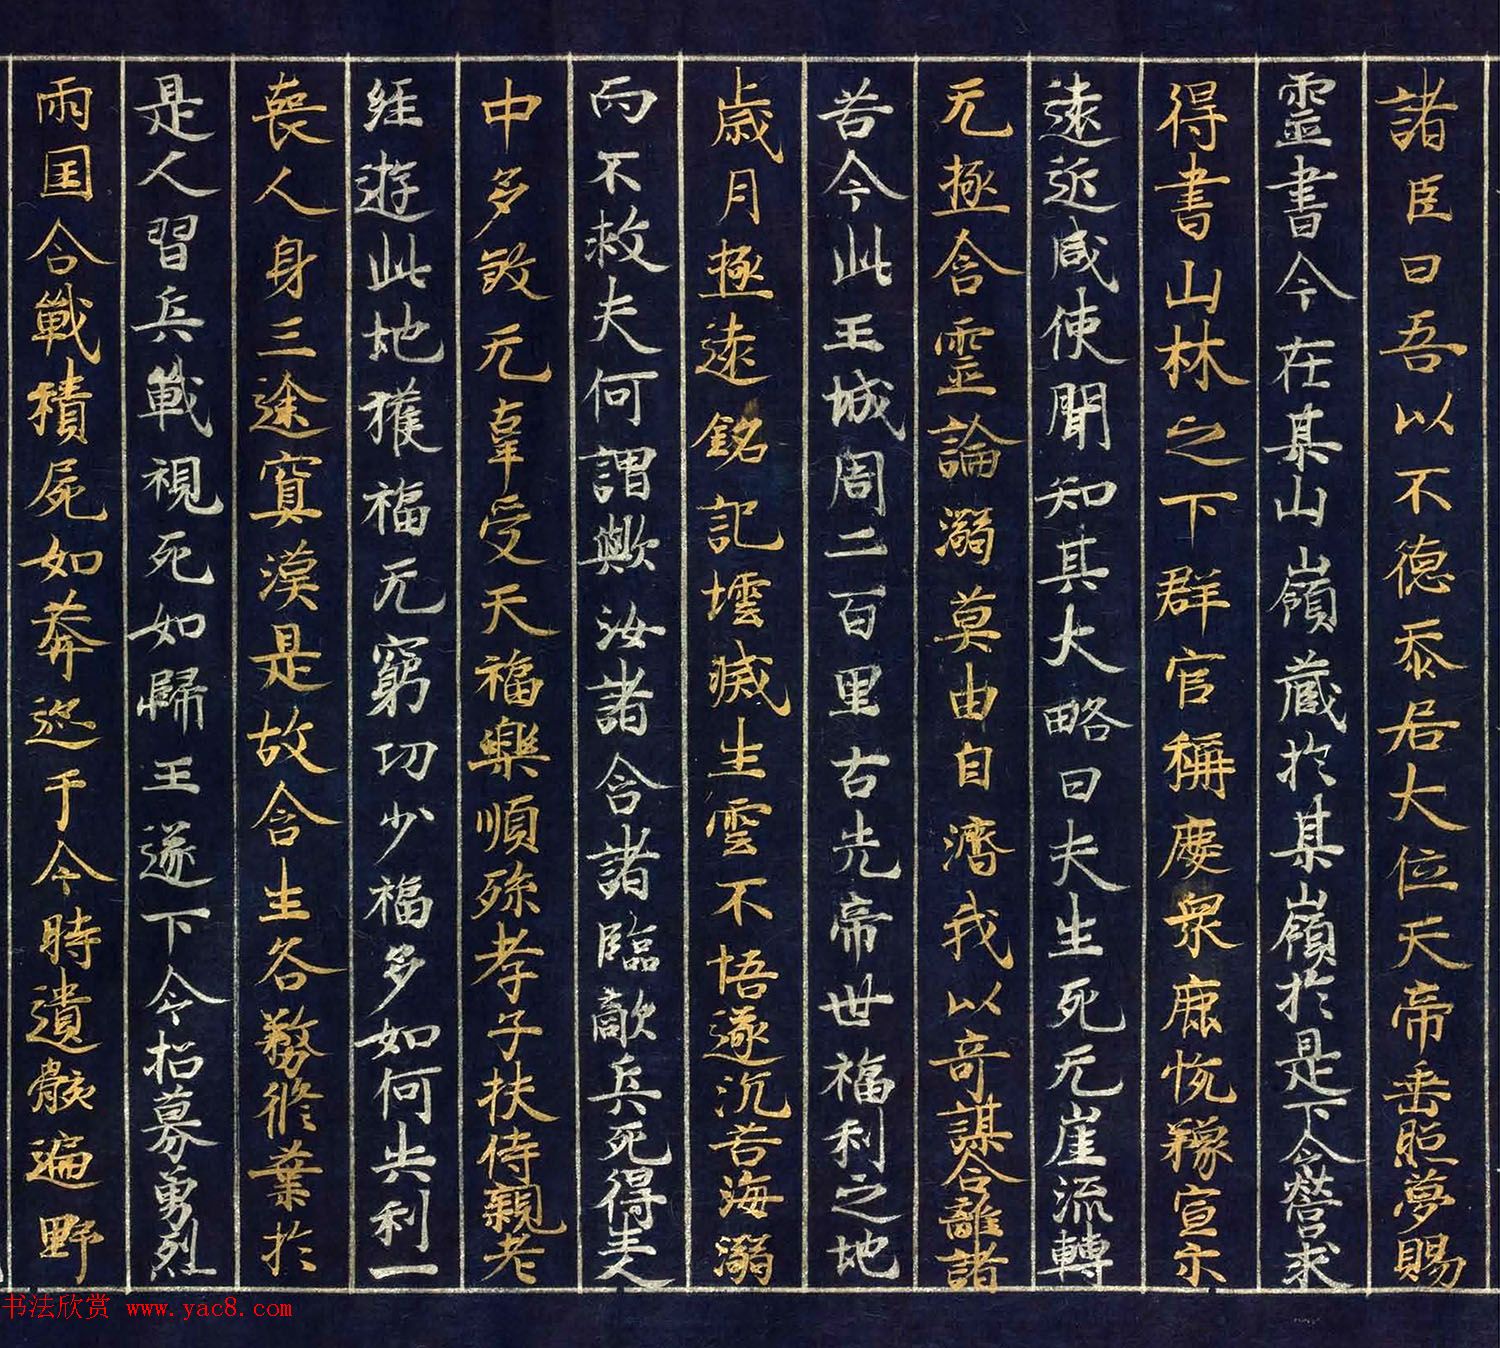 諸臣曰吾以不德忝居大位天帝垂照夢賜
靈書今在某山嶺藏於某嶺於是下令營求
得書山林之下群官稱慶衆庶忻豫宣示
遠近咸使聞知其大略曰夫生死无崖流轉
无極含靈論溺莫由自濟我以奇謀令離諸
苦今此王城周二百里古先帝世福利之地
歲月極遠銘記堙滅生靈不悟遂沉苦海溺
而不救夫何謂歟汝諸含諸臨敵兵死得生人
中多敦无辜受天福樂順孫孝子扶侍親老
經遊此地獲福无窮功少福多如何失利一
喪人身三途寘漠是故含生各務修業於
是人習兵戰視死如歸王遂下令招募勇烈
兩国合戰積屍如莽迄于今時遺骸遍野
书法欣赏 www.yac8.com